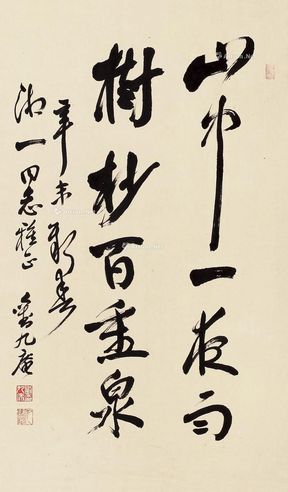 山中一夜雨
樹杪百重泉
辛未新春
一同志雅正
劉九庵